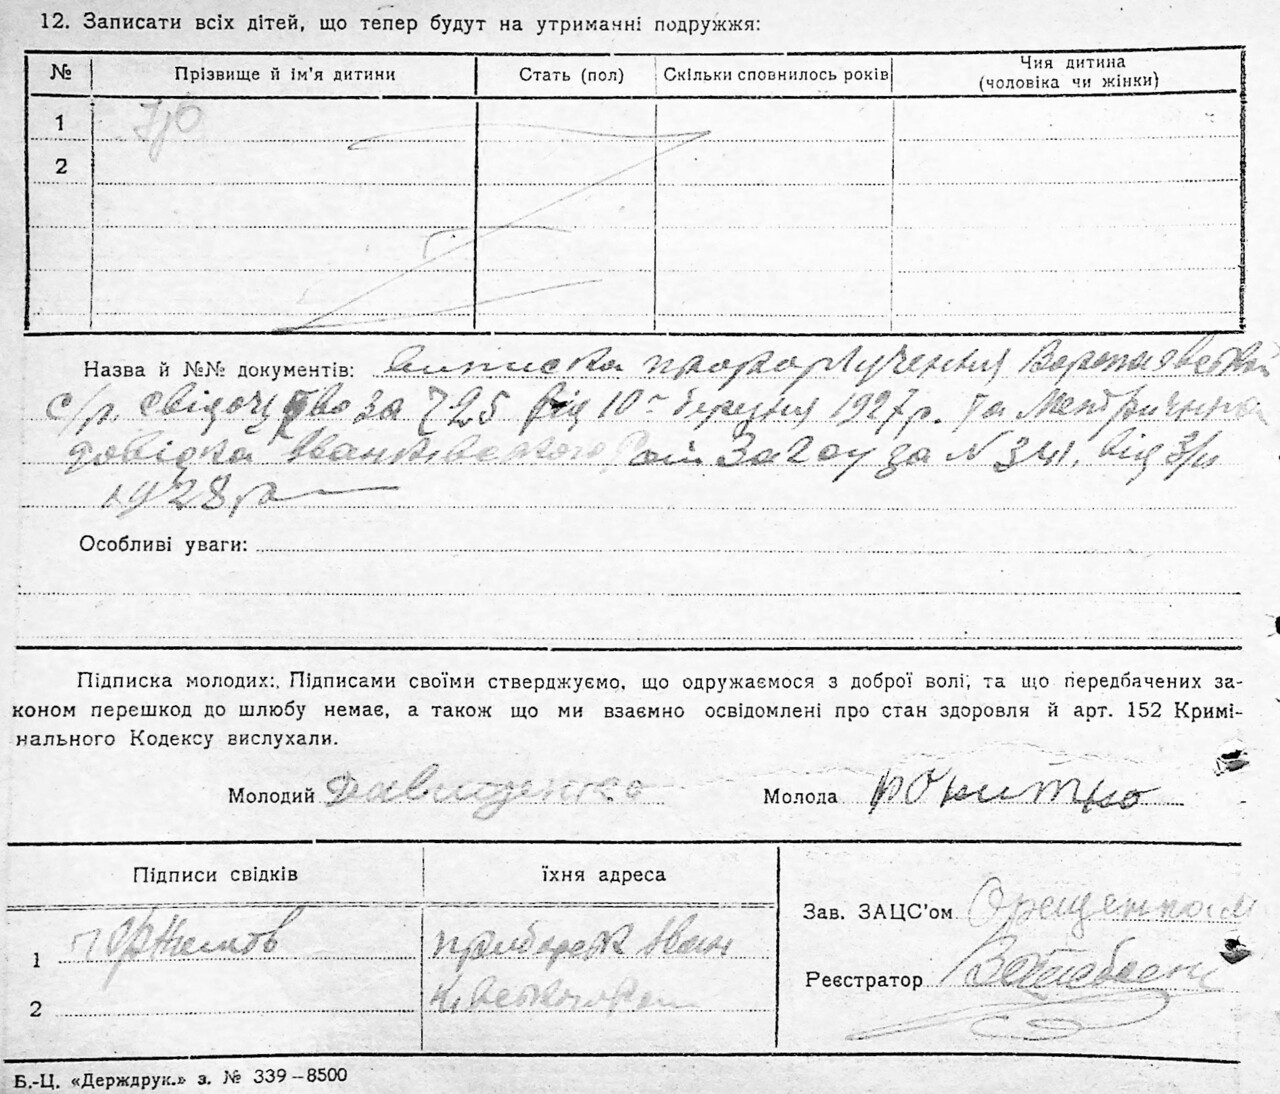 12. Записати всіх дітей, що тепер будут на утриманні подружжя:
№ Прізвище й ім'я дитини Стать (пол) Скільки сповнилось років Чия дитина (чоловіка чи жінки)
1
2
Назва й №№ документів: виписка про розлучення
с/р. свідоцтво за 725 від 10 березня 1927 р. та Метрична
довідка Іванківського Рай Загсу за N 341. від
1928 р.
Особливі уваги:
Підписка молодих: Підписами своїми стверджуємо, що одружаємося з доброї волі, та що передбачених за-
коном перешкод до шлюбу немає, а також що ми взаємно освідомлені про стан здоровля й арт. 152 Кримі-
нального Кодексу вислухали.
Молодий Давиденко Молода
Підписи свідків їхня адреса
Зав. ЗАЦС'ом
1
Реєстратор
2
Б.-Ц. «Держдрук.» з. № 339–8500